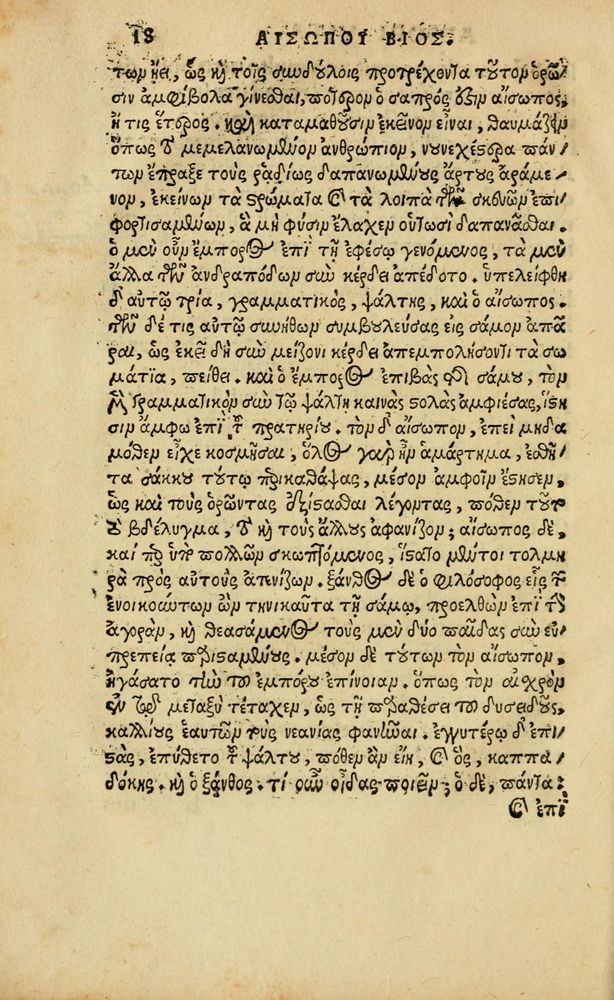 18 ΑΙΣΩΠΟΥ ΒΙΟΣ.
των ᾔει, ὡς καὶ τοῖς συνδούλοις προτρέχοντα τοῦτον ὁρῶ-
σιν ἀμφίβολα γίνεσθαι, πότερον ὁ σαπρός ἐστιν αἴσωπος,
ἤ τις ἕτερος. καὶ καταμαθοῦσιν ἐκεῖνον εἶναι, θαυμάζειν
ὅπως τὸ μεμελανωμένον ἀνθρώπιον, νουνεχέστερα πάν-
των ἔπραξε τοὺς ῥαδίως δαπανωμένους ἄρτους ἀράμε-
νον, ἐκείνων τὰ στρώματα καὶ τὰ λοιπὰ τῶν σκευῶν ἐπι-
φορτισαμένων, ἃ μὴ φύσιν ἔλαχεν οὑτωσὶ δαπανᾶσθαι.
ὁ μὲν οὖν ἔμπορος ἐπὶ τῇ ἐφέσῳ γενόμενος, τὰ μὲν
ἄλλα τῶν ἀνδραπόδων σὺν κέρδει ἀπέδοτο. ὑπελείφθη
δ' αὐτῷ τρία, γραμματικὸς, ψάλτης, καὶ ὁ αἴσωπος.
τῶν δέ τις αὐτῷ συνήθων συμβουλεύσας εἰς σάμον ἀπᾶ-
ραι, ὡς ἐκεῖ δὴ σὺν μείζονι κέρδει ἀπεμπολήσοντι τὰ σω-
μάτια, πείθει. καὶ ὁ ἔμπορος ἐπιβὰς τῆς σάμου, τὸν
μὲν γραμματικὸν σὺν τῷ ψάλτῃ καινὰς στολὰς ἀμφιέσας, ἵστη-
σιν ἄμφω ἐπὶ τοῦ πρατηρίου. τὸν δ' αἴσωπον, ἐπεὶ μηδα-
μόθεν εἶχε κοσμῆσαι, ὅλος γὰρ ἦν ἁμάρτημα, ἐσθῆ-
τα σάκκου τούτῳ περικαθάψας, μέσον ἀμφοῖν ἔστησεν,
ὡς καὶ τοὺς ὁρῶντας ἐξίστασθαι λέγοντας, πόθεν τοῦ-
το βδέλυγμα, τὸ καὶ τοὺς ἄλλους ἀφανίζον; αἴσωπος δὲ,
καίπερ ὑπὸ πολλῶν σκωπτόμενος, ἵστατο μέντοι τολμη-
ρὰ πρὸς αὐτοὺς ἀτενίζων. ξάνθος δὲ ὁ φιλόσοφος εἷς τῶν
ἐνοικούντων ὢν τηνικαῦτα τῇ σάμῳ, προελθὼν ἐπὶ τὴν
ἀγορὰν, καὶ θεασάμενος τοὺς μὲν δύο παῖδας σὺν εὐ-
πρεπείᾳ παρισταμένους. μέσον δὲ τούτων τὸν αἴσωπον,
ἠγάσατο τὴν τοῦ ἐμπόρου ἐπίνοιαν. ὅπως τὸν αἰσχρὸν
ἐν τῷ μεταξὺ τέταχεν, ὡς τῇ παραθέσει τοῦ δυσειδοῦς,
καλλίους ἑαυτῶν τοὺς νεανίας φανῆναι. ἐγγυτέρω δ' ἐπι-
στὰς, ἐπύθετο τοῦ ψάλτου, πόθεν ἂν εἴη, καὶ ὃς, καππα-
δόκης. καὶ ὁ ξάνθος. τί οὖν οἶδας ποιεῖν; ὁ δὲ, πάντα.
καὶ ἐπὶ